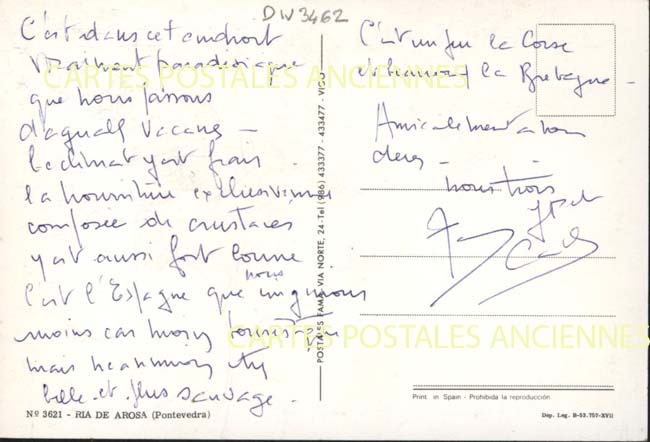 DW3462
C'est dans cet endroit
vraiment paradisiaque
que nous passons
vacances -
le climat y est frais
la nourriture exclusivement
composée de crustacés
y est aussi fort bonne
nous
c'est l'Espagne que
moins car moins touristique
mais néanmoins très
belle et plus sauvage.
Nº 3621 - RIA DE AROSA (Pontevedra)
POSTALES FAMA. VIA NORTE, 24-Tel (986) 433377 - 433477 - VIGO
C'est un peu la Corse
et la Bretagne -
Amicalement a vous
deux -
nous trois
Print. in Spain - Prohibida la reproducción
Dep. Leg. B-53.757-XVII
CARTES POSTALES ANCIENNES
CARTES POSTALES ANCIENNES